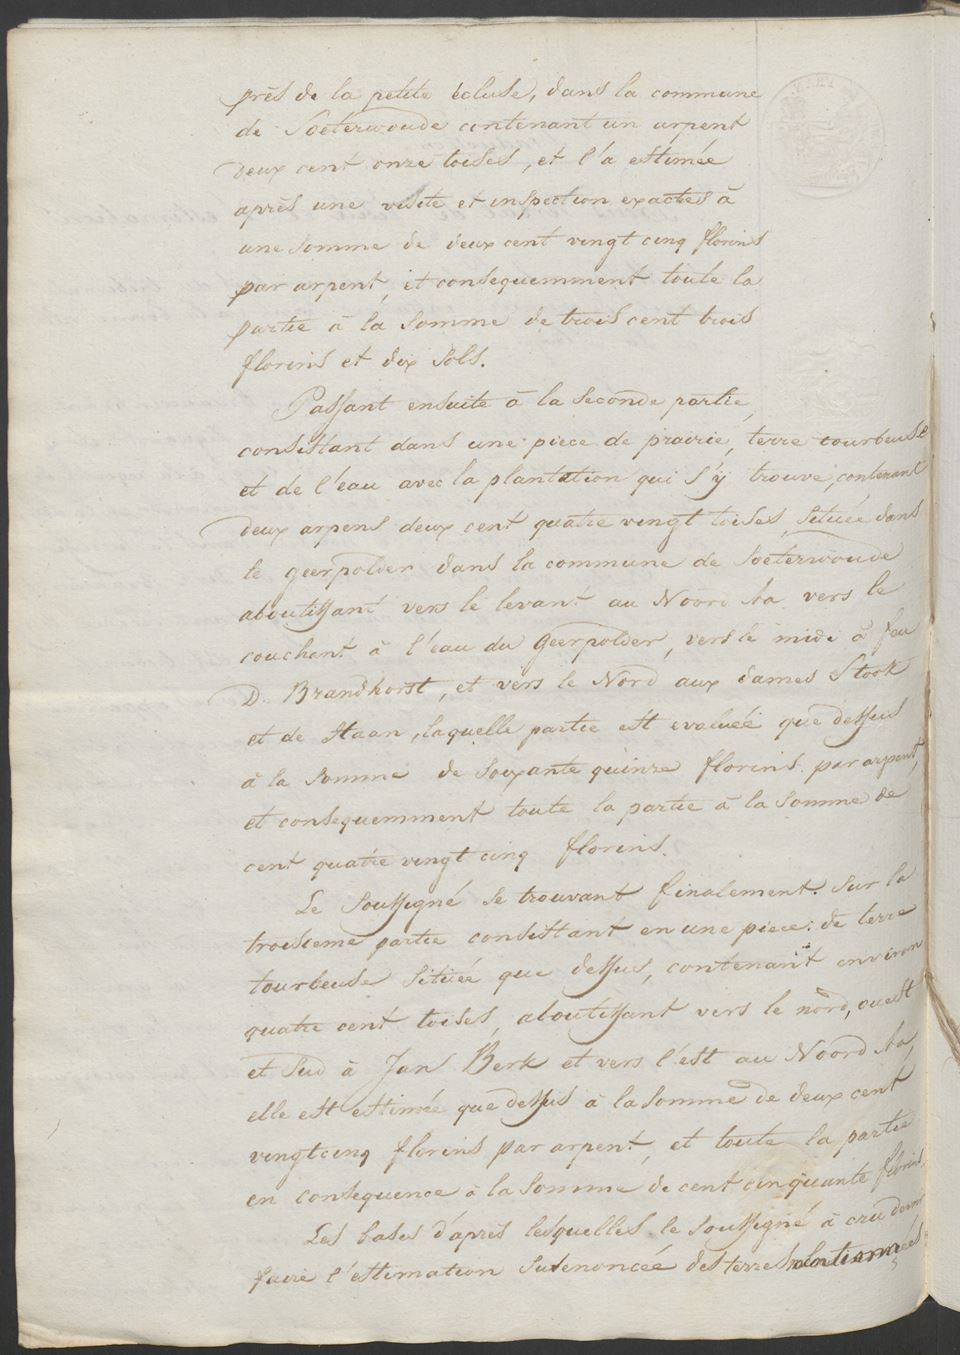 près de la petite écluse, dans la commune
de Soeterwoude contenant un arpent
deux cent onze toises, et l'a estimée
après une visite et inspection exactes à
une somme de deux cent vingt cinq florins
par arpent, et consequemment toute la
partie à la somme de trois cent trois
florins et dix sols.
Passant ensuite à la seconde partie,
consistant dans une piece de prairie, terre tourbeuse
et de l'eau avec la plantation qui s'y trouve, contenant
deux arpens deux cent quatre vingt toises, située dans
le geerpolder dans la commune de Soeterwoude
aboutissant vers le levant au Noord Aa vers le
couchant à l'eau du Geerpolder, vers le midi à feu
D. Brandhorst, et vers le Nord aux dames Stook
et de Haan, laquelle partie est evaluée que dessus
à la somme de soixante quinze florins par arpent,
et consequemment toute la partie à la somme de
cent quatre vingt cinq florins.
Le soussigné se trouvant finalement sur la
troisieme partie consistant en une piece de terre
tourbeuse située que dessus, contenant environ
quatre cent toises, aboutissant vers le nord, ouest
et sud à Jan Berk et vers l'est au Noord Aa,
elle est estimée que dessus à la somme de deux cent
vingt cinq florins par arpent, et toute la partie
en consequence à la somme de cent cinquante florins
Les bases d'après lesquelles le soussigné à cru devoir
faire l'estimation susenoncée des terres mentionnées